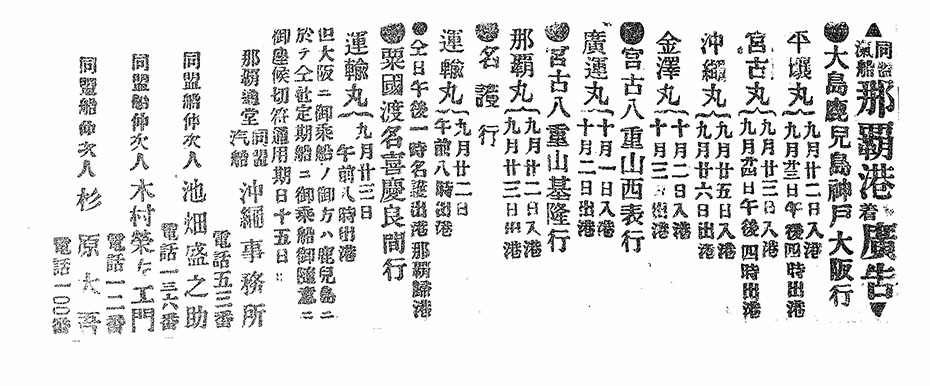 ▲同盟汽船那覇港着廣告▼
●大島鹿兒島神戸大阪行
平壤丸 九月廿二日入港
九月廿三日午後四時出港
宮古丸 九月廿三日入港
九月廿四日午後四時出港
沖繩丸 九月廿五日入港
九月廿六日出港
金澤丸 十月二日入港
十月三日出港
●宮古八重山西表行
廣運丸 十月一日入港
十月二日出港
●宮古八重山基隆行
那覇丸 九月廿二日入港
九月廿三日出港
●名護行
運輸丸 九月廿二日
午前八時出港
●仝日午後一時名護出港那覇歸港
●粟國渡名喜慶良間行
運輸丸 九月廿三日
午前八時出港
但大阪ニ御乘船ノ御方ハ鹿兒島ニ
於テ仝社定期船ニ御乘船御隨意ニ
御座候切符通用期日十五日
那覇通堂 同盟汽船 沖繩事務所
電話五三番
同盟船仲次人 池畑盛之助
電話一三六番
同盟船仲次人 木村榮左エ門
電話一二番
同盟船仲次人 杉原大吾
電話一〇〇番